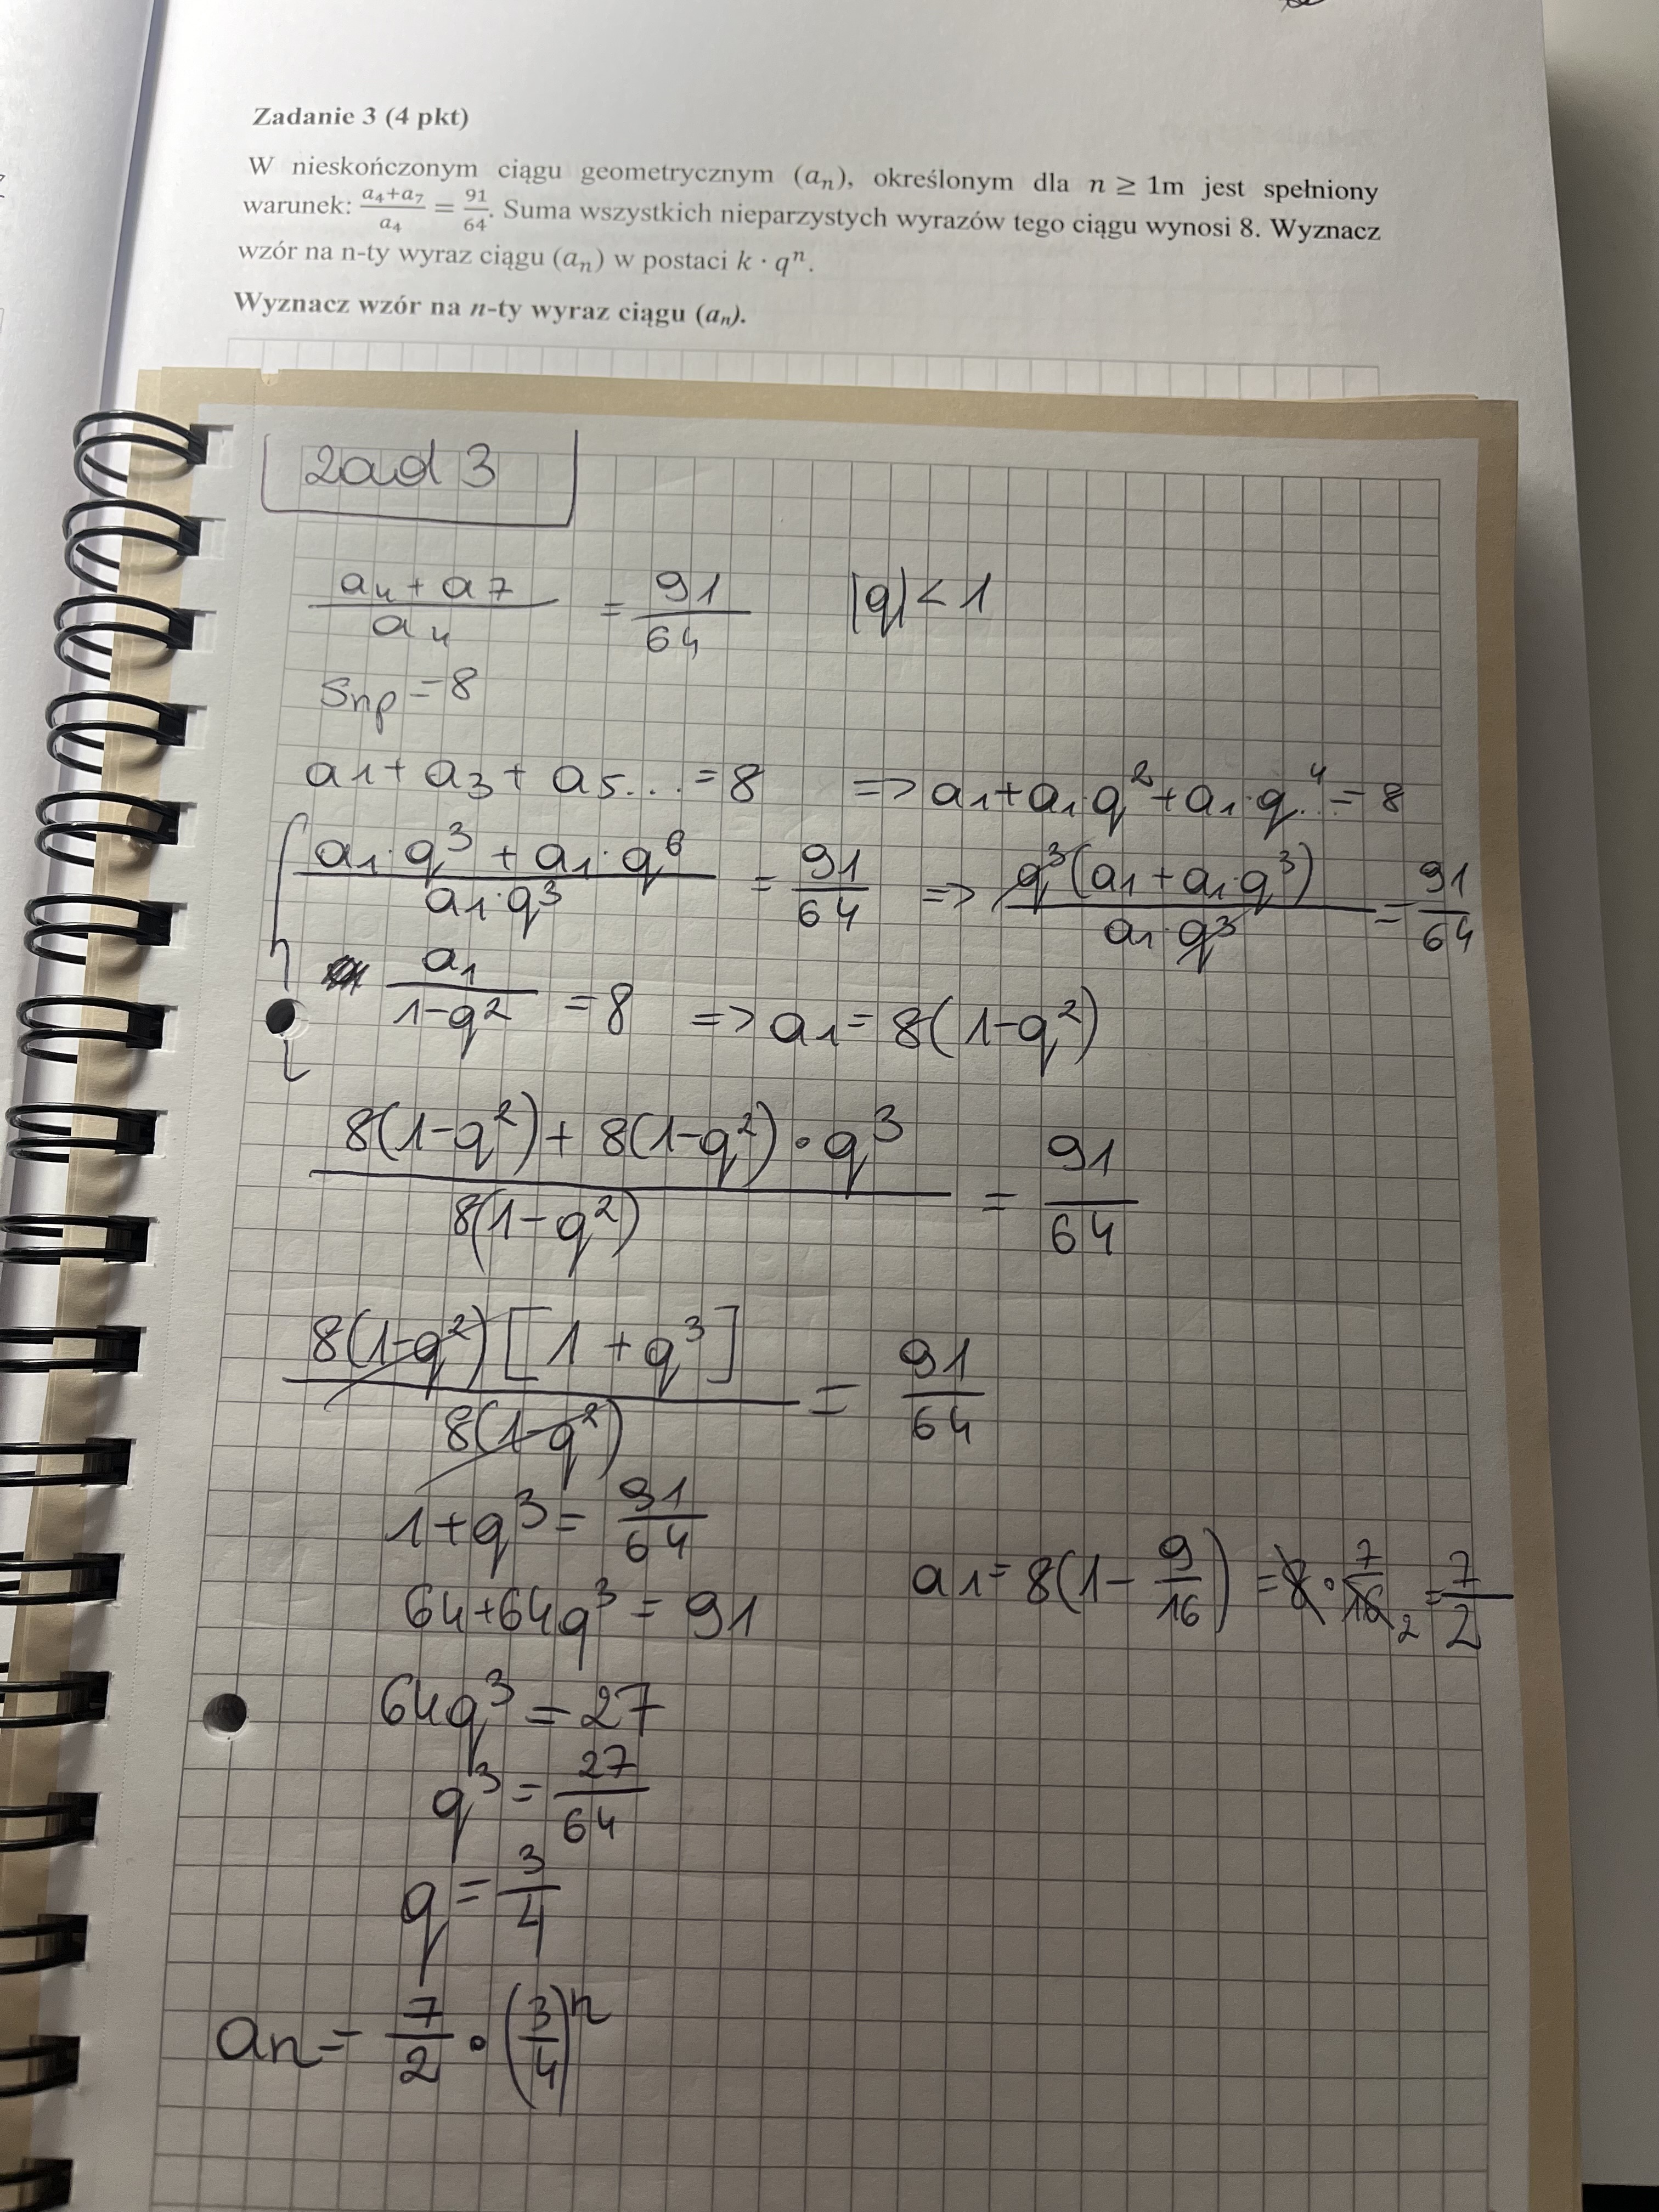 Zadanie 3 (4 pkt)
W nieskończonym ciągu geometrycznym (aₙ), określonym dla n ≥ 1m jest spełniony
warunek: (a₄+a₇)/a₄ = 91/64. Suma wszystkich nieparzystych wyrazów tego ciągu wynosi 8. Wyznacz
wzór na n-ty wyraz ciągu (aₙ) w postaci k · qⁿ.
Wyznacz wzór na n-ty wyraz ciągu (aₙ).
Zad 3
(a₄ + a₇)/a₄ = 91/64 |q| < 1
Snp = 8
a₁ + a₃ + a₅... = 8 => a₁ + a₁·q² + a₁·q⁴... = 8
(a₁·q³ + a₁·q⁶)/(a₁·q³) = 91/64 => q³(a₁ + a₁·q³)/(a₁·q³) = 91/64
a₁/(1-q²) = 8 => a₁ = 8(1-q²)
(8(1-q²) + 8(1-q²)·q³)/(8(1-q²)) = 91/64
8(1-q²)[1 + q³]/(8(1-q²)) = 91/64
1+q³ = 91/64
a₁ = 8(1 - 9/16) = 8 · 7/16 2 = 7/2
64+64q³ = 91
64q³ = 27
q³ = 27/64
q = 3/4
an = 7/2 · (3/4)ⁿ